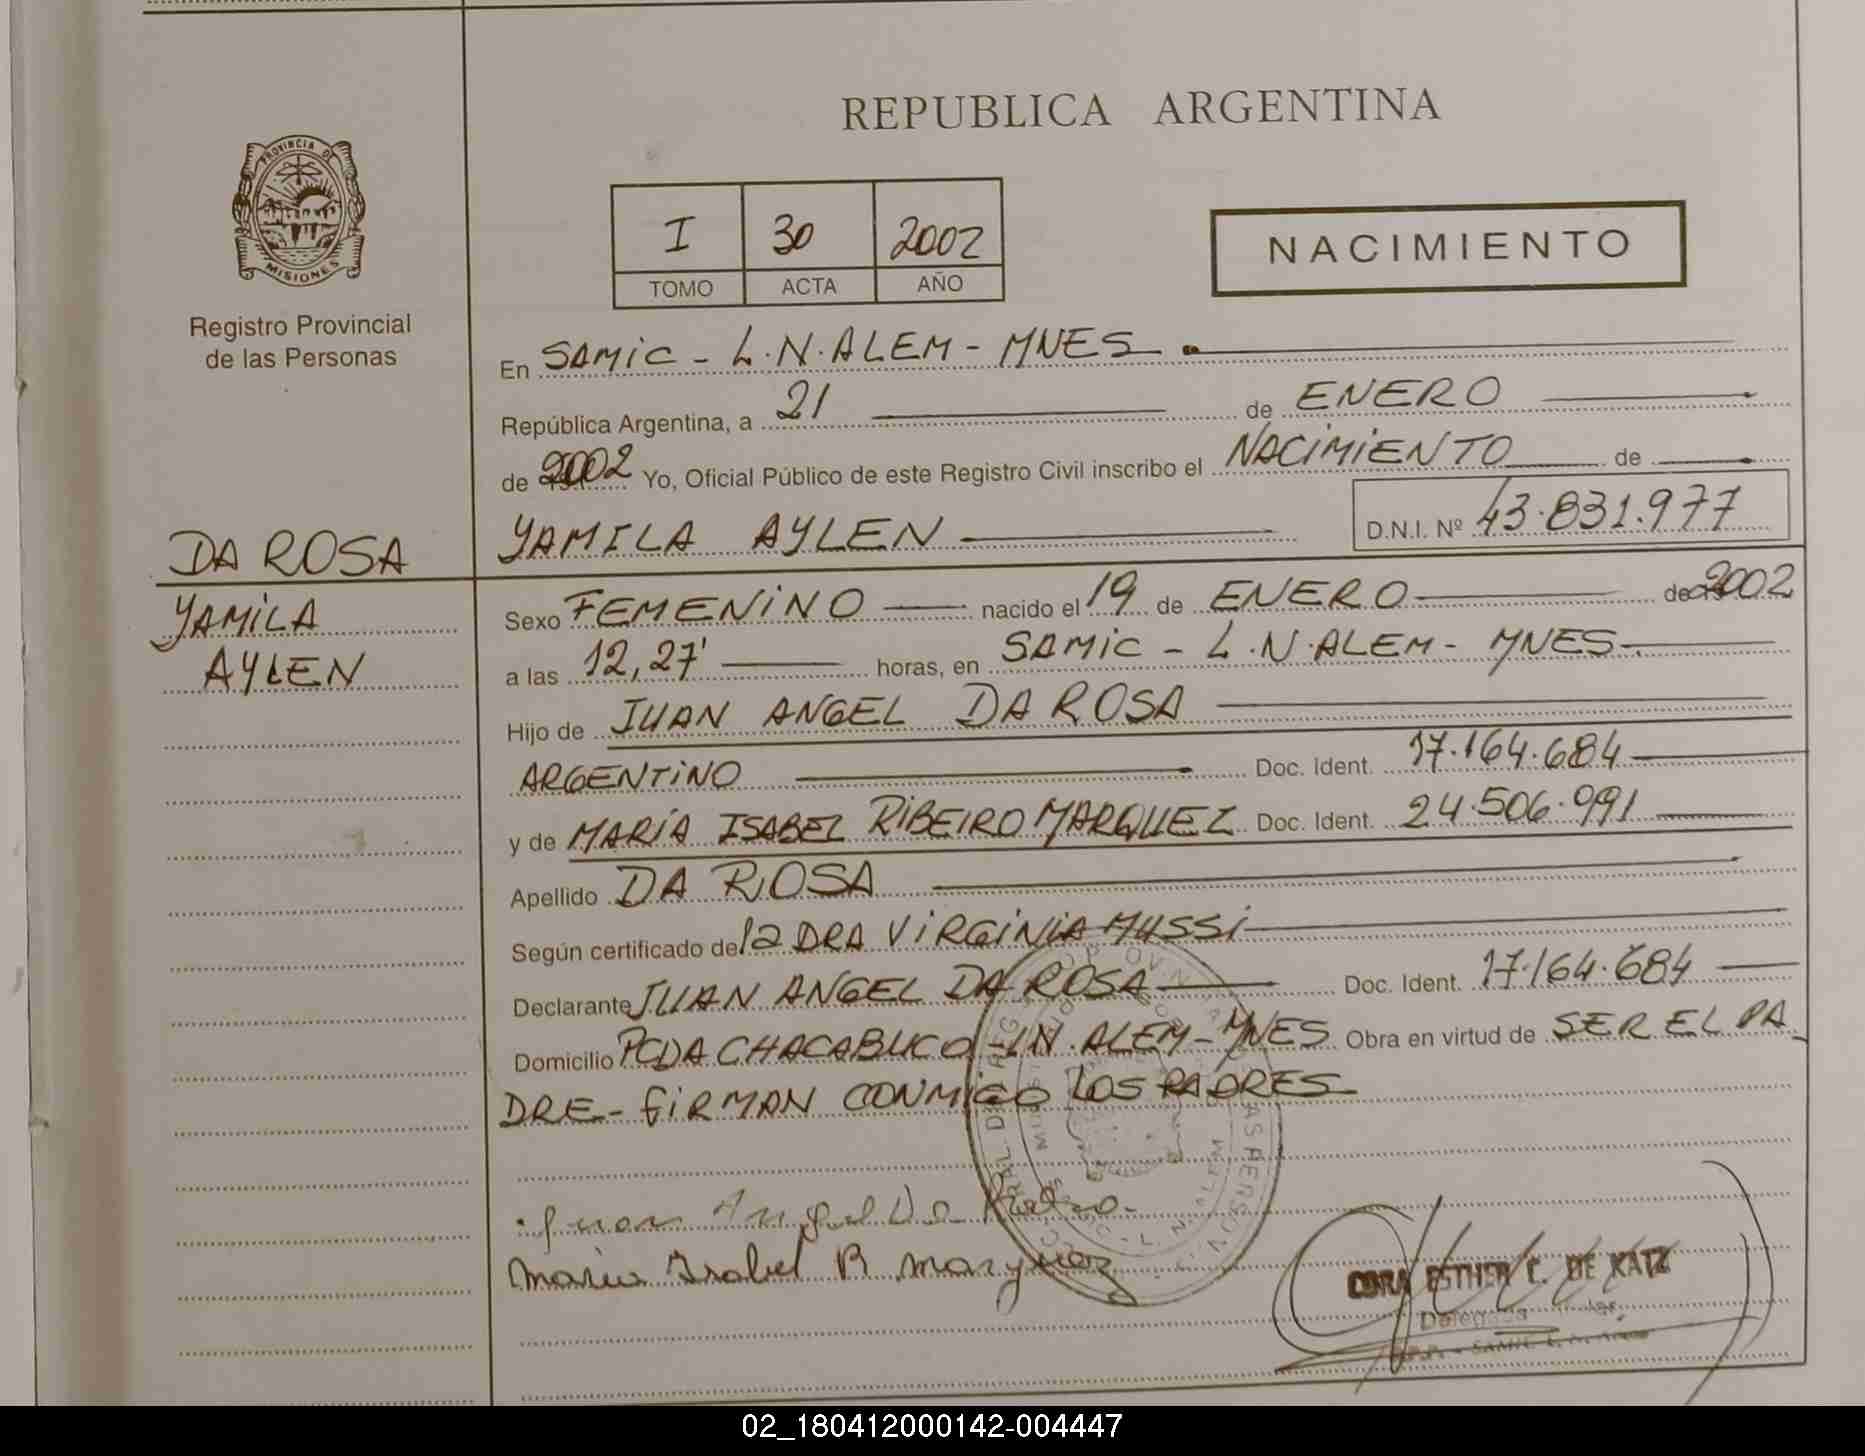 REPUBLICA ARGENTINA
PROVINCIA DE
MISIONES
Registro Provincial
de las Personas
I 30 2002
TOMO ACTA AÑO
NACIMIENTO
En SAMIC - L.N.ALEM - MNES
República Argentina, a 21 de ENERO
de 2002 Yo, Oficial Público de este Registro Civil inscribo el NACIMIENTO de
YAMILA AYLEN D.N.I. Nº 43.831.977
DA ROSA
YAMILA
AYLEN
Sexo FEMENINO nacido el 19 de ENERO de 2002
a las 12,27' horas, en SAMIC - L.N.ALEM - MNES
Hijo de JUAN ANGEL DA ROSA
ARGENTINO Doc. Ident. 17.164.684
y de MARÍA ISABEL RIBEIRO MARQUEZ Doc. Ident. 24.506.991
Apellido DA ROSA
Según certificado de la DRA VIRGINIA MUSSI
Declarante JUAN ANGEL DA ROSA Doc. Ident. 17.164.684
Domicilio PCDA CHACABUCO - L.N. ALEM - MNES Obra en virtud de SER EL PA
DRE - FIRMAN CONMIGO LOS PADRES
Juan Angel Da
Maria Isabel R Marquez
ESTHER C. DE KATZ
Delegada
02_180412000142-004447